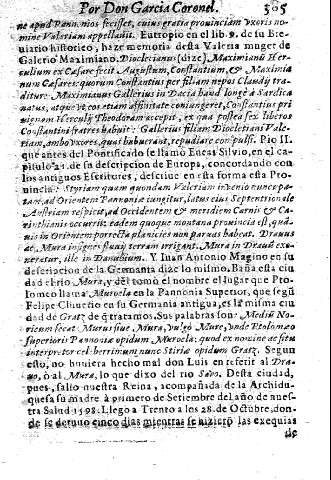 Por Don Garcia Coronel. 305
ne apud Pannonios fecisset, cuius gratia prouinciam vxoris no-
mine Valeriam appellauit. Eutropio en el lib. 9. de su Bre-
uiario historico, haze memoria desta Valeria muger de
Galerio Maximiano. Diocletianus (dize) Maximianũ Her-
culium ex Cæsare fecit Augustum, Constantium, & Maximia
num Cæsares: quorum Constantius per filiam nepos Claudij tra-
ditur: Maximianus Gallerius in Dacia haud longè à Sardica
natus, atque vt eos etiam affinitate coniungeret, Constantius pri
uignam Herculij Theodoram accepit, ex qua postea sex liberos
Constantini fratres habuit: Gallerius filiam Diocletiani Vale-
riam, ambo vxores, quas habuerant, repudiare compulsi. Pio II.
que antes del Pontificado se llamò Eneas Siluio, en el ca-
pitulo 21. de su descripcion de Europa, concordando con
los antiguos Escritores, descriue en esta forma esta Pro-
uincia: Styriam quam quondam Valeriam inuenio nuncupa-
tam, ad Orientem Pannoniæ iungitur, latus eius Septentrionale
Austriam respicit, ad Occidentem & meridiem Carnis & Ca-
rinthianis occurrit: eadem quoque montana prouincia est, quã-
uis in Orientem porrecta planicies non paruas habeat. Drauus
ac Mura insignes fluuij terram irrigant. Mura in Drauũ exo-
neratur, ille in Danubium. Y Iuan Antonio Magino en su
descripcion de la Germania dize lo mismo. Baña esta ciu
dad el rio Mura, y del tomò el nombre el lugar que Pto-
lomeo llama Muroela en la Pannonia Superior, que segũ
Felipe Cluuerio en su Germania antigua, es la misma ciu
dad de Gratz de q̃ tratamos. Sus palabras son: Mediũ No-
ricum secat Murus siue Mura, vulgò Mure, vnde Ptolomæo
superioris Pannoniæ opidum, Muroela: quod ex nomine ac situ
interpretor celeberrimum nunc Stiriæ opidum Gratz. Segun
esto, no huuiera hecho mal don Luis en referir al Dra-
uo, ò al Mura, lo que dixo del rio Sauo. Desta ciudad,
pues, salio nuestra Reina, acompañada de la Archidu-
quesa su madre à primero de Setiembre del año de nues-
tra Salud 1598. Llegò a Trento a los 28. de Octubre, don-
de se detuuo cinco dias mientras se hizierõ las exequias
de